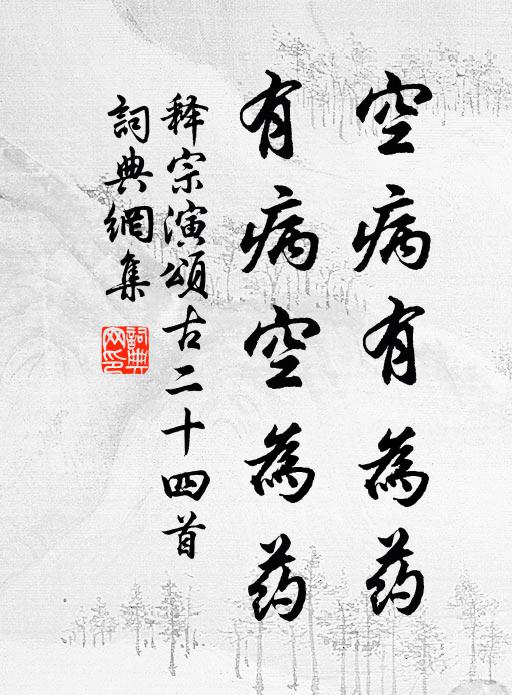 空病有為药
有病空為药
释宗演頌古二十四首
詞典網集
詞典
网印